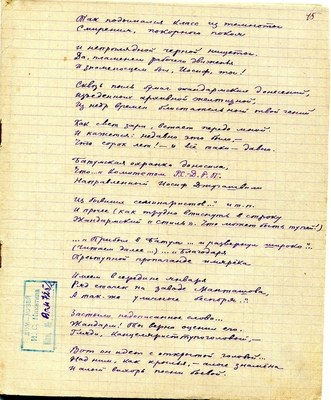 15
Так поднимался класс из темноты
Смиренья, покорного покоя
И непроглядной черной нищеты.
Да, пламенем рабочего движенья
И знаменосцем был, Иосиф, ты!
Сквозь пыль бумаг жандармских донесений,
Изъеденных архивной желтизной,
Из недр времен блистательный твой гений
Как свет зари, встает передо мной.
И кажется: недавно это было,—
Это сорок лет!— и всё таки — давно.
Батумская охранка доносила,
Что... "комитетом Р.-Д.Р.П.
Направленный Иосиф Джугашвили
Из бывших семинаристов..." и т.п.
И прочее (как трудно втиснуть в строку
Жандармский "стиль". Что может быть тупей!)
..."Прибыл в Батум... и развернул широко"...
(Читаем далее...)..."Благодаря
Преступной пропаганде
Имели в середине января
Ряд стачек на заводе Манташова,
А так же уличные беспоряд."
Застыли недописанные слова...
Жандарм! Ты верно оценил его.
Гляди, канцелярист тупоголовый,—
Вот он идет с открытой головой...
Над ним, как крылья,— алые знамёна
И алый вихорь песни боевой.